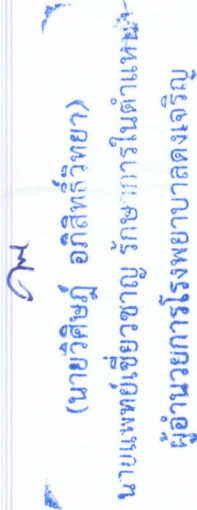 (นายวิศิษฎ์ อภิสิทธิ์วิทยา)
นายแพทย์เชี่ยวชาญ รักษาการในตำแหน่ง
ผู้อำนวยการโรงพยาบาลดงเจริญ